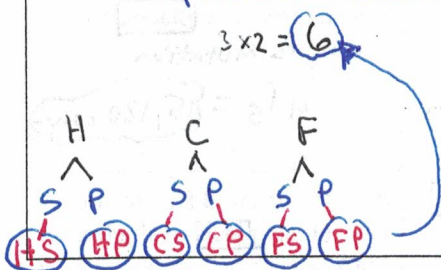 3 x 2 = 6
H C F
S P S P S P
HS HP CS CP FS FP